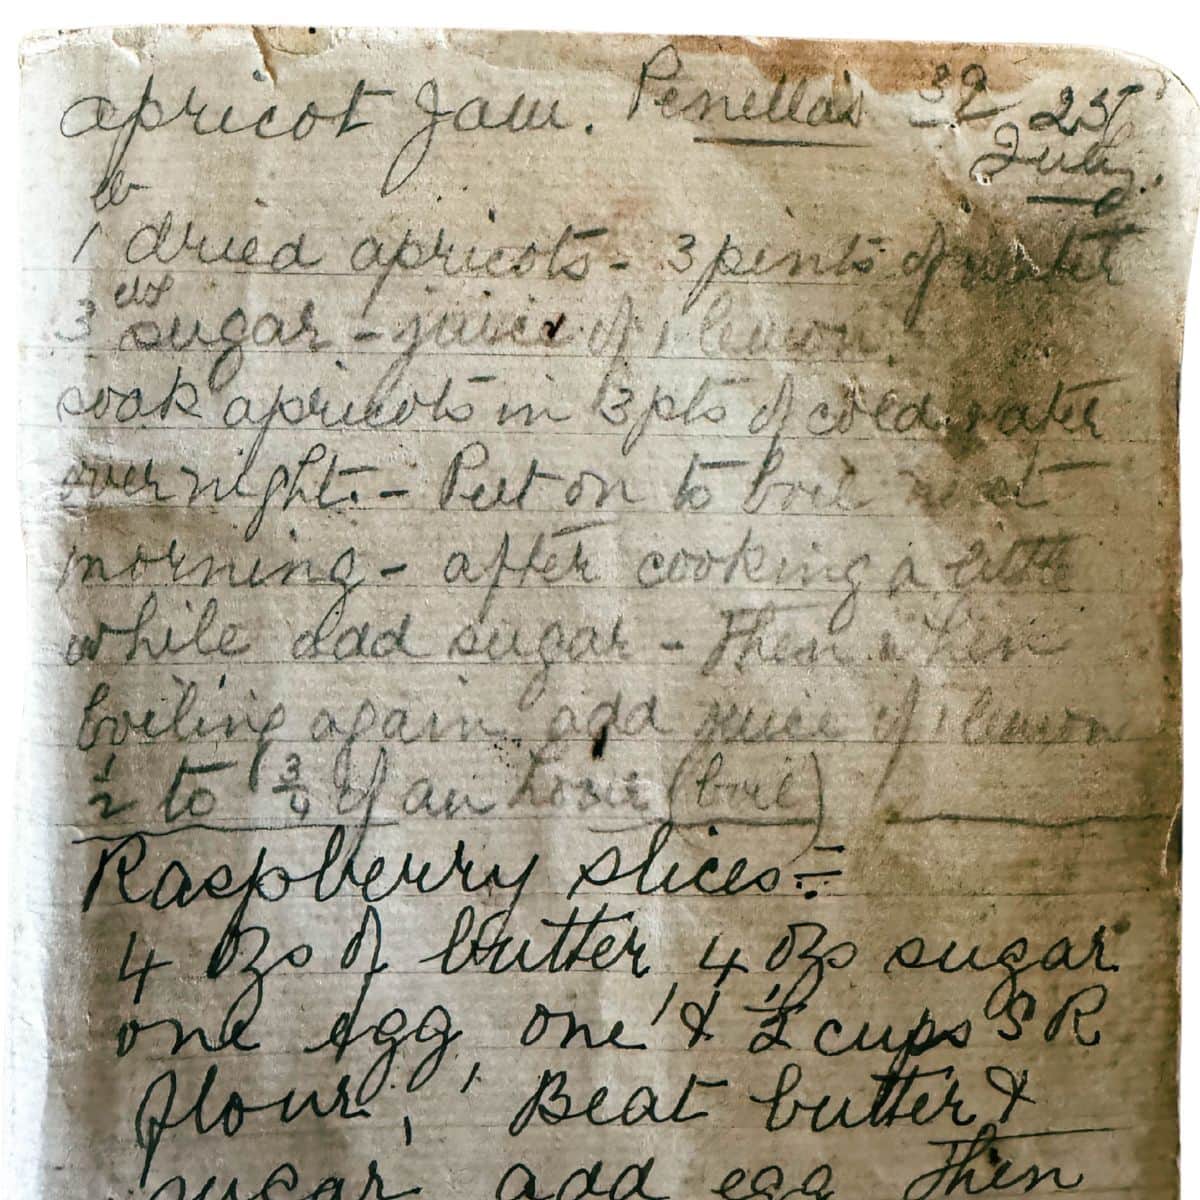 apricot Jam. Penella's 39 25
July.
lb
1 dried apricots - 3 pints of water
3 sugar - juice of 1 lemon.
soak apricots in 3 pts of cold water
over night. - Put on to boil next
morning - after cooking a little
while add sugar - Then when
boiling again add juice of 1 lemon
1/2 to 3/4 of an hour (boil)
Raspberry slices:-
4 ozs of butter, 4 ozs sugar
one egg, one & 1/2 cups S R
flour, Beat butter &
sugar add egg Then